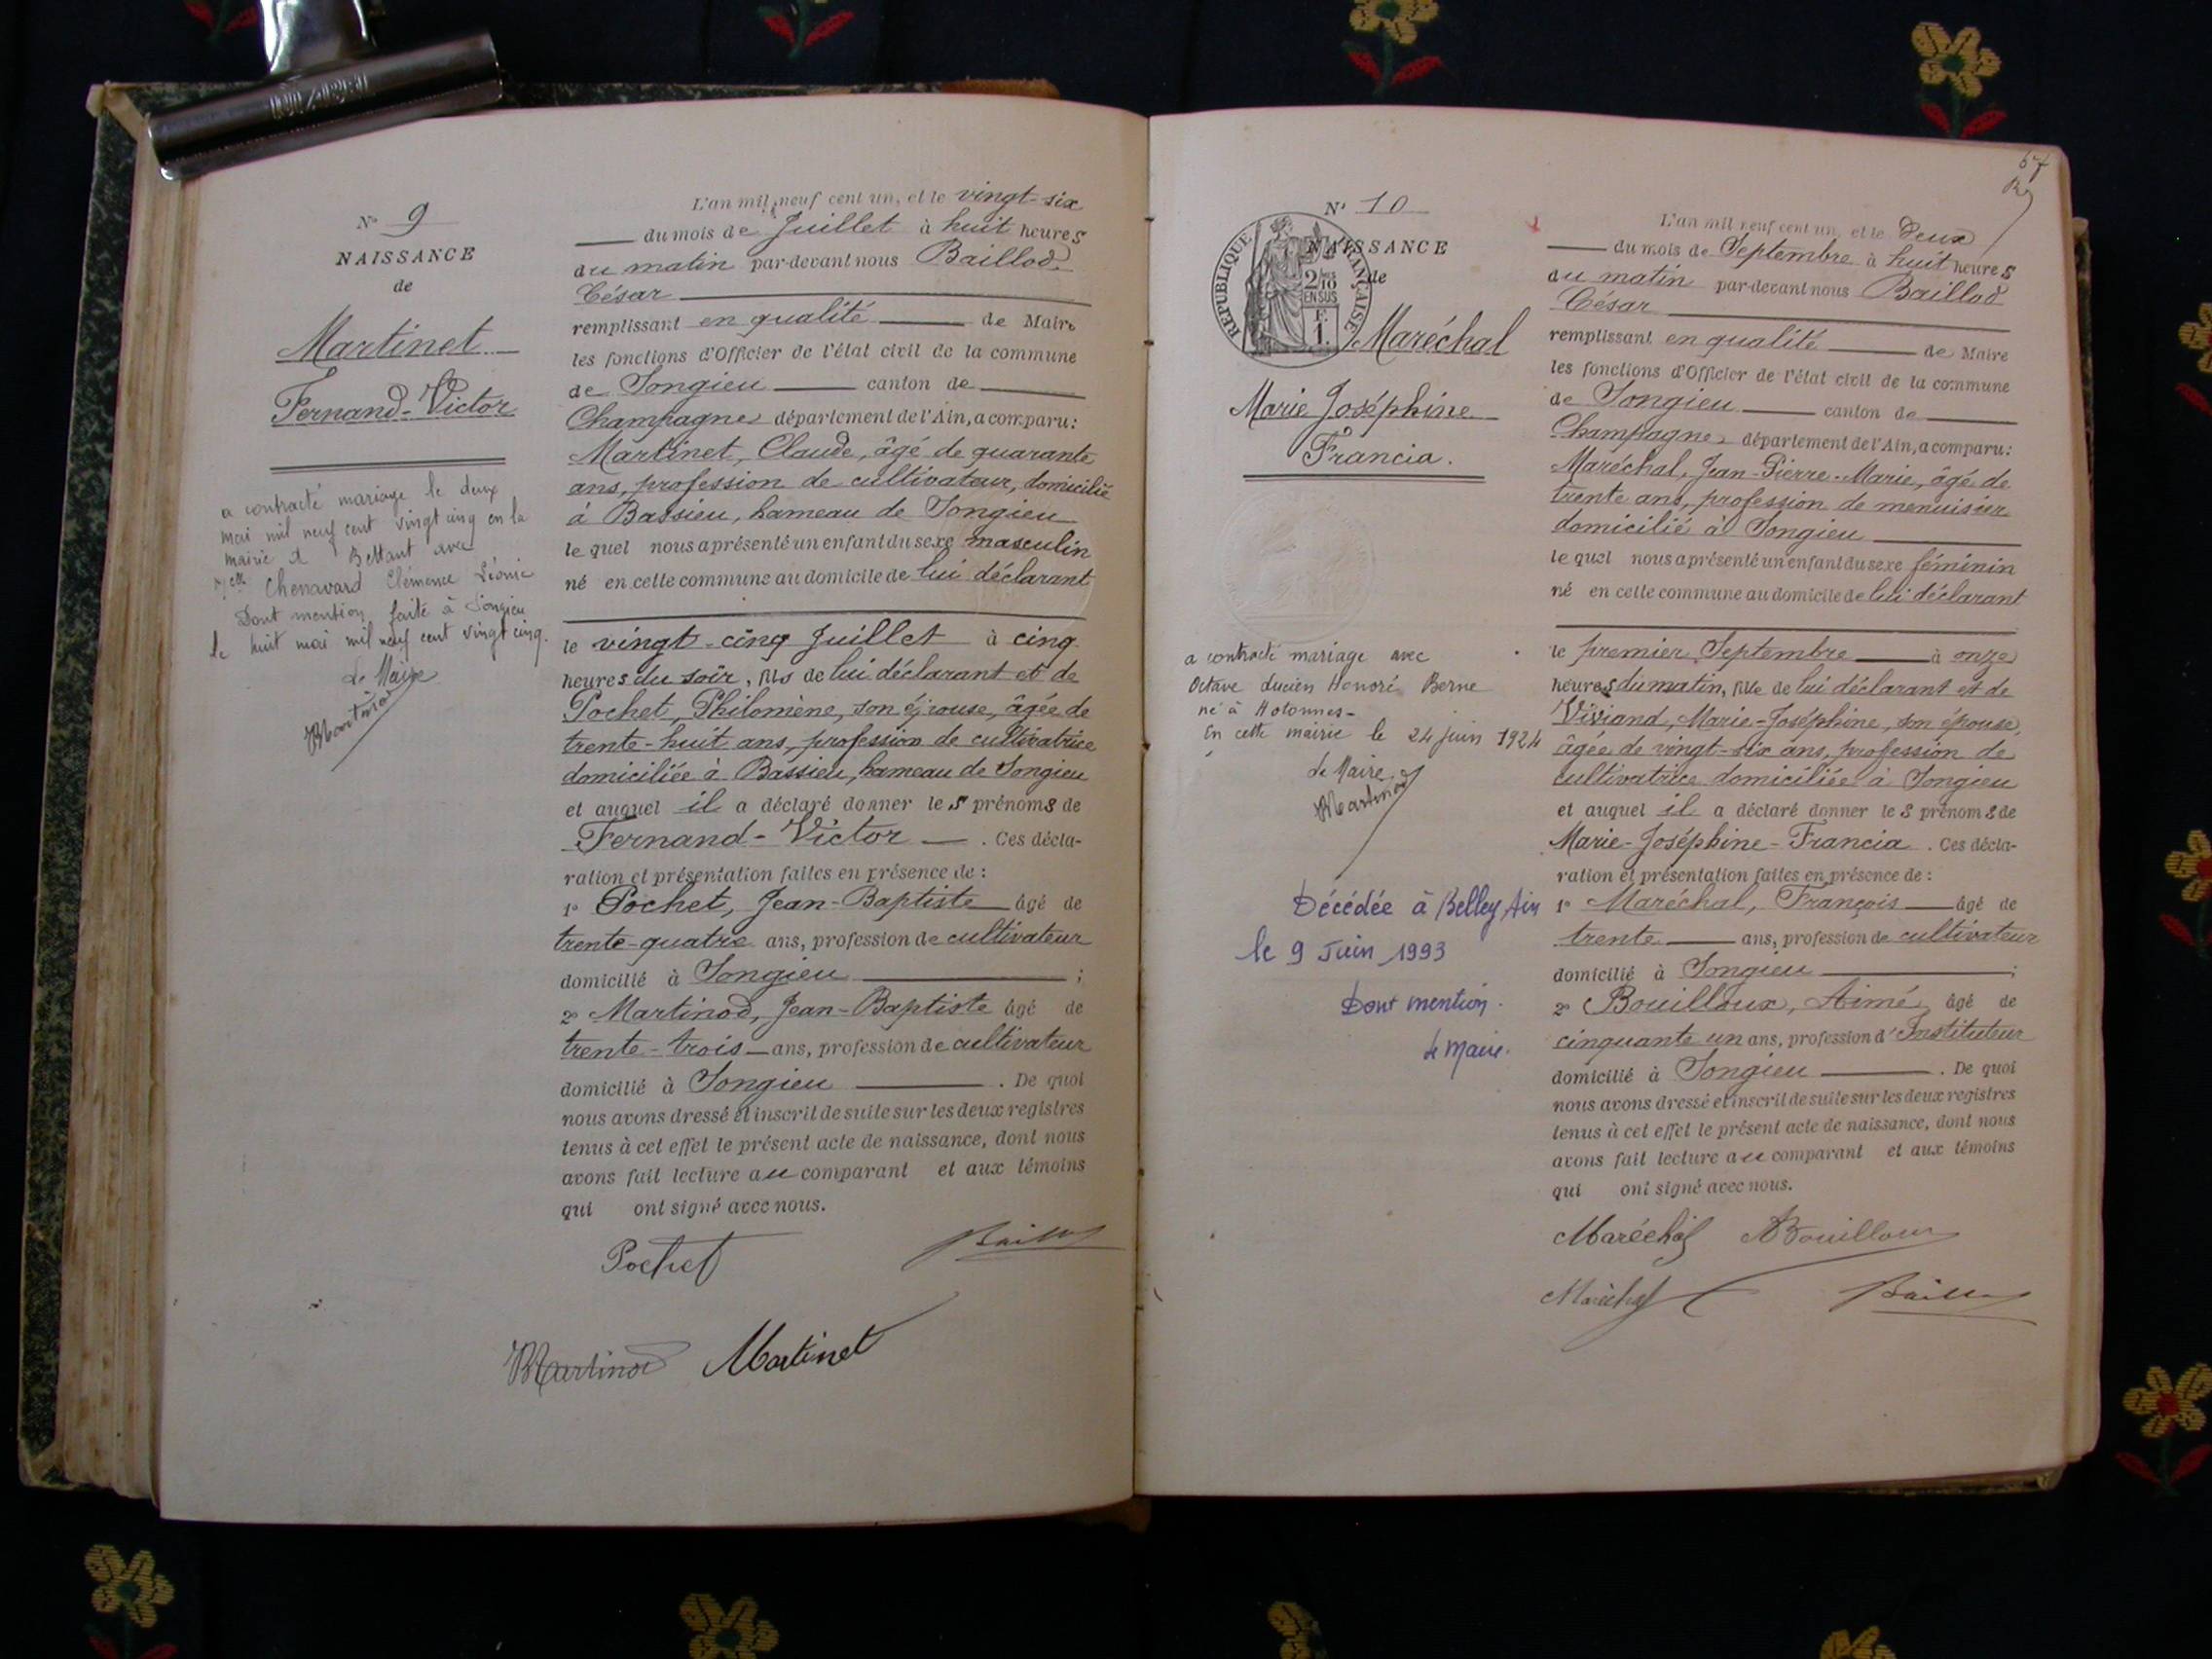 N° 9
NAISSANCE
de
Martinet
Fernand-Victor
a contracté mariage le deux
mai mil neuf cent vingt cinq en la
mairie de Bettant avec
Melle Chenavard Clémence Léonie
Dont mention faite à Songieu
le huit mai mil neuf cent vingt cinq.
Le Maire
Martinod
L'an mil neuf cent un, et le vingt-six
du mois de Juillet à huit heures
du matin par-devant nous Baillod
César
remplissant en qualité de Maire
les fonctions d'Officier de l'état civil de la commune
de Songieu canton de
Champagne département de l'Ain, a comparu:
Martinet, Claude, âgé de quarante
ans, profession de cultivateur, domicilié
à Bassieu, hameau de Songieu
lequel nous a présenté un enfant du sexe masculin
né en cette commune au domicile de lui déclarant
le vingt-cinq Juillet à cinq
heures du soir, fils de lui déclarant et de
Pochet, Philomène, son épouse, âgée de
trente-huit ans, profession de cultivatrice
domiciliée à Bassieu, hameau de Songieu
et auquel il a déclaré donner les prénoms de
Fernand-Victor. Ces décla-
ration et présentation faites en présence de :
1° Pochet, Jean-Baptiste âgé de
trente-quatre ans, profession de cultivateur
domicilié à Songieu ;
2° Martinod, Jean-Baptiste âgé de
trente-trois ans, profession de cultivateur
domicilié à Songieu. De quoi
nous avons dressé et inscrit de suite sur les deux registres
tenus à cet effet le présent acte de naissance, dont nous
avons fait lecture au comparant et aux témoins
qui ont signé avec nous.
Pochet Baillod
Martinod Martinet
57
N° 10
NAISSANCE
de
REPUBLIQUE FRANÇAISE
2/10
EN SUS
F.
1.
Maréchal
Marie Joséphine
Francia.
a contracté mariage avec
Octave Lucien Honoré Berne
né à Hotonnes-
En cette mairie le 24 juin 1924
Le Maire
Martinod
Décédée à Belley, Ain
le 9 Juin 1993
Dont mention.
Le Maire.
L'an mil neuf cent un, et le deux
du mois de Septembre à huit heures
du matin par-devant nous Baillod
César
remplissant en qualité de Maire
les fonctions d'Officier de l'état civil de la commune
de Songieu canton de
Champagne département de l'Ain, a comparu:
Maréchal, Jean-Pierre-Marie, âgé de
trente ans, profession de menuisier
domicilié à Songieu
lequel nous a présenté un enfant du sexe féminin
né en cette commune au domicile de lui déclarant
le premier Septembre à onze
heures du matin, fille de lui déclarant et de
Viviand, Marie-Joséphine, son épouse,
âgée de vingt-six ans, profession de
cultivatrice domiciliée à Songieu
et auquel il a déclaré donner les prénoms de
Marie-Joséphine-Francia. Ces décla-
ration et présentation faites en présence de :
1° Maréchal, François âgé de
trente ans, profession de cultivateur
domicilié à Songieu ;
2° Bouilloux, Aimé, âgé de
cinquante un ans, profession d'Instituteur
domicilié à Songieu. De quoi
nous avons dressé et inscrit de suite sur les deux registres
tenus à cet effet le présent acte de naissance, dont nous
avons fait lecture au comparant et aux témoins
qui ont signé avec nous.
Maréchal ABouilloux
Maréchal Baillod